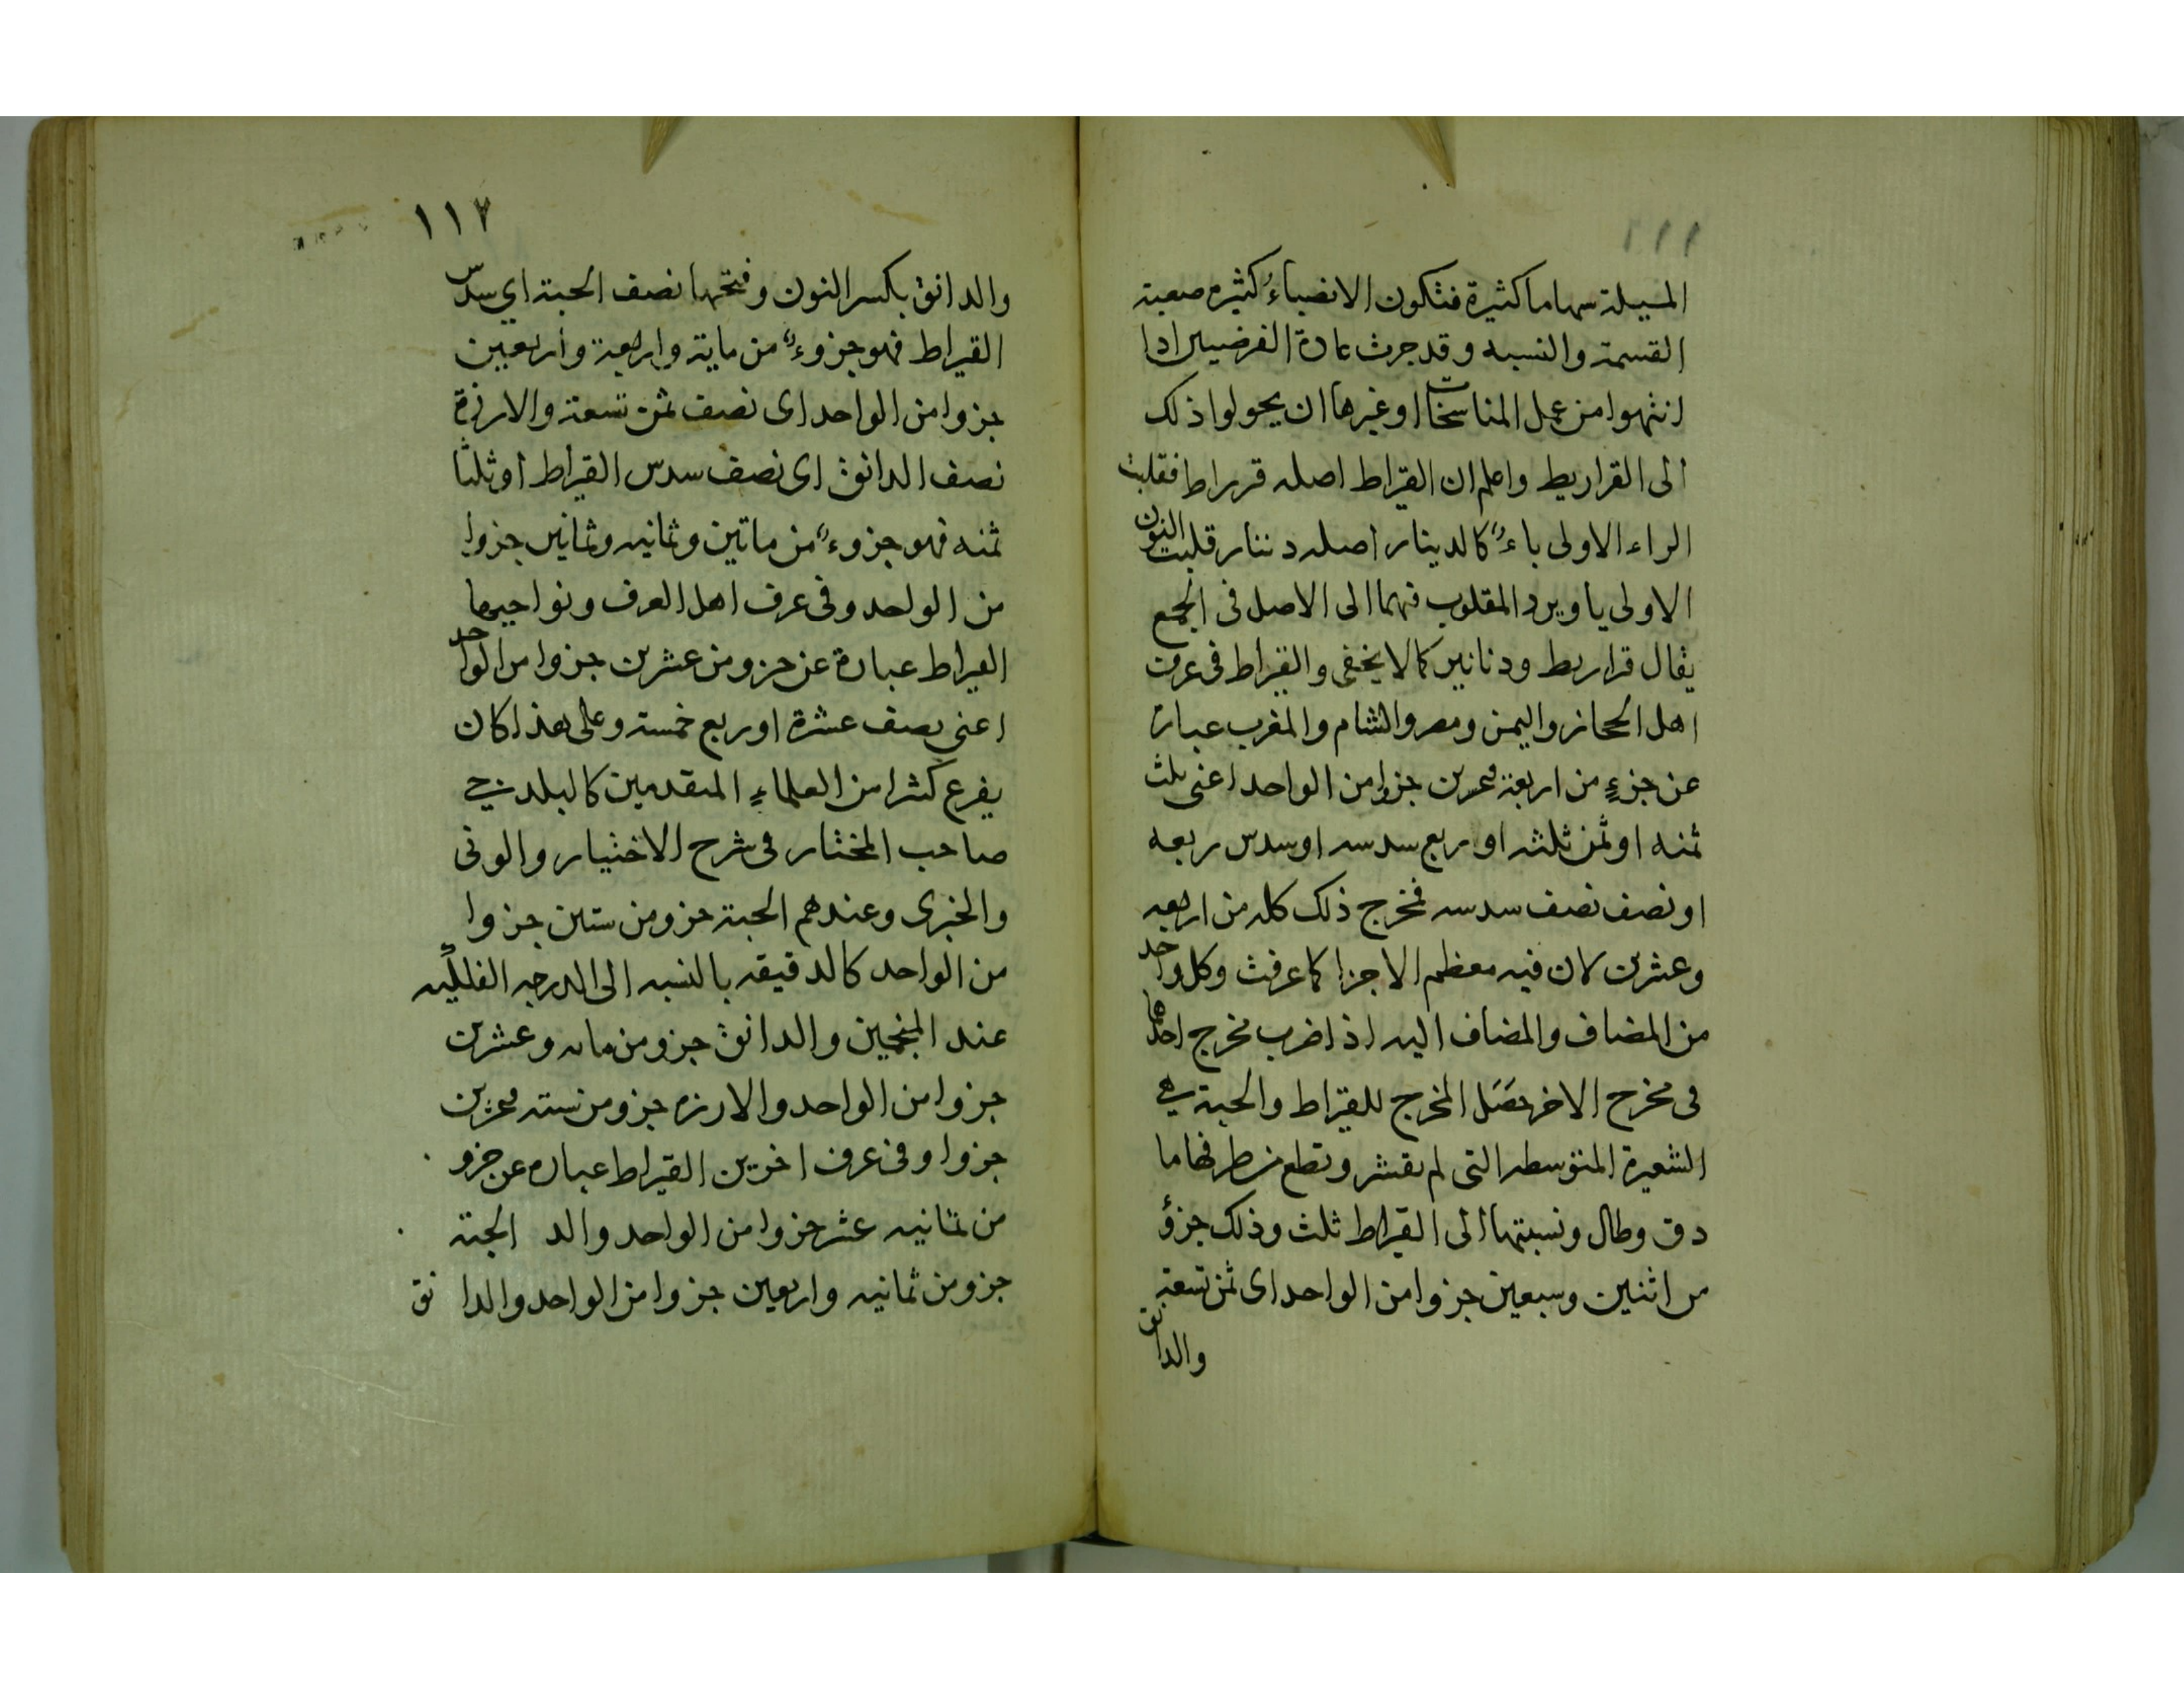 ١١١
المسيلة سهاما كثيرة فتكون الانصباءُ كثيره صعبة
القسمة والنسبه وقد جرت عادة الفرضيين اذا
انتهوا من عمل المناسخات او غيرها ان يحولوا ذلك
الى القراريط واعلم ان القراط اصله قرراط فقلبت
الراء الاولى ياءً كالدينار اصله دننار قلبت النون
الاولى يا ويرد المقلوب فيهما الى الاصل فى الجمع
يقال قراريط ودنانير كما لا يخفى والقيراط فى عرف
اهل الحجاز واليمن ومصر والشام والمغرب عبارة
عن جزءٍ من اربعة وعشرين جزوا من الواحد اعنى ثلث
ثمنه او ثمن ثلثه او ربع سدسه او سدس ربعه
او نصف نصف سدسه فمخرج ذلك كله من اربعه
وعشرين لان فيه معظم الاجزا كما عرفت وكل واحد
من المضاف والمضاف اليه اذا ضرب مخرج احدهما
فى مخرج الاخر حصَل المخرج للقيراط والحبة هي
الشعيرة المتوسطه التى لم تقشر وقطع من طرفها ما
دق وطال ونسبتها الى القيراط ثلث وذلك جزؤ
من اثنين وسبعين جزوا من الواحد اى ثمن تسعه
والدانق
١١٢
والدانق بكسر النون وفتحها نصف الحبة اي سدس
القيراط فهو جزوءٌ من ماية واربعة وأربعين
جزوا من الواحد اى نصف ثمن تسعة والارزة
نصف الدانق اى نصف سدس القيراط او ثلثا
ثمنه فهو جزوءٌ من ماتين وثمانيه وثمانين جزوا
من الواحد وفى عرف اهل العرف ونواحيها
القيراط عبارة عن جزو من عشرين جزوا من الواحد
اعنى نصف عشرة او ربع خمسة وعلى هذا كان
يفرع كثرا من العلماءِ المتقدمين كالبلدجي
صاحب المختار فى شرح الاختيار والونى
والخبرى وعندهم الحبة جزو من ستين جزوا
من الواحد كالدقيقه بالنسبه الى الدرجه الفلكيه
عند المنجمين والدانق جزو من مايه وعشرين
جزوا من الواحد والارزه جزو من ستة وعشرين
جزوا وفى عرف اخرين القيراط عباره عن جزو
من ثمانيه عشر جزوا من الواحد والد الحبة
جزو من ثمانيه واربعين جزوا من الواحد والدانق